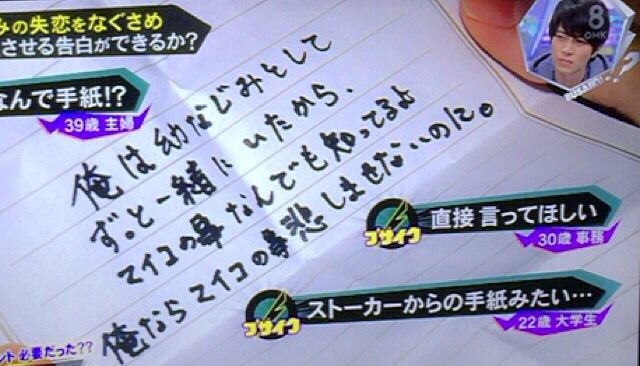 みの失恋をなぐさめ
させる告白ができるか?
なんで手紙!?
39歳 主婦
8
OHK
俺は幼なじみとして
ずっと一緒にいたから、
マイコの事なんでも知ってるよ
俺ならマイコの事悲しませないのに。
ブサイク
直接 言ってほしい
30歳 事務
ブサイク
ストーカーからの手紙みたい…
22歳 大学生
ント必要だった??